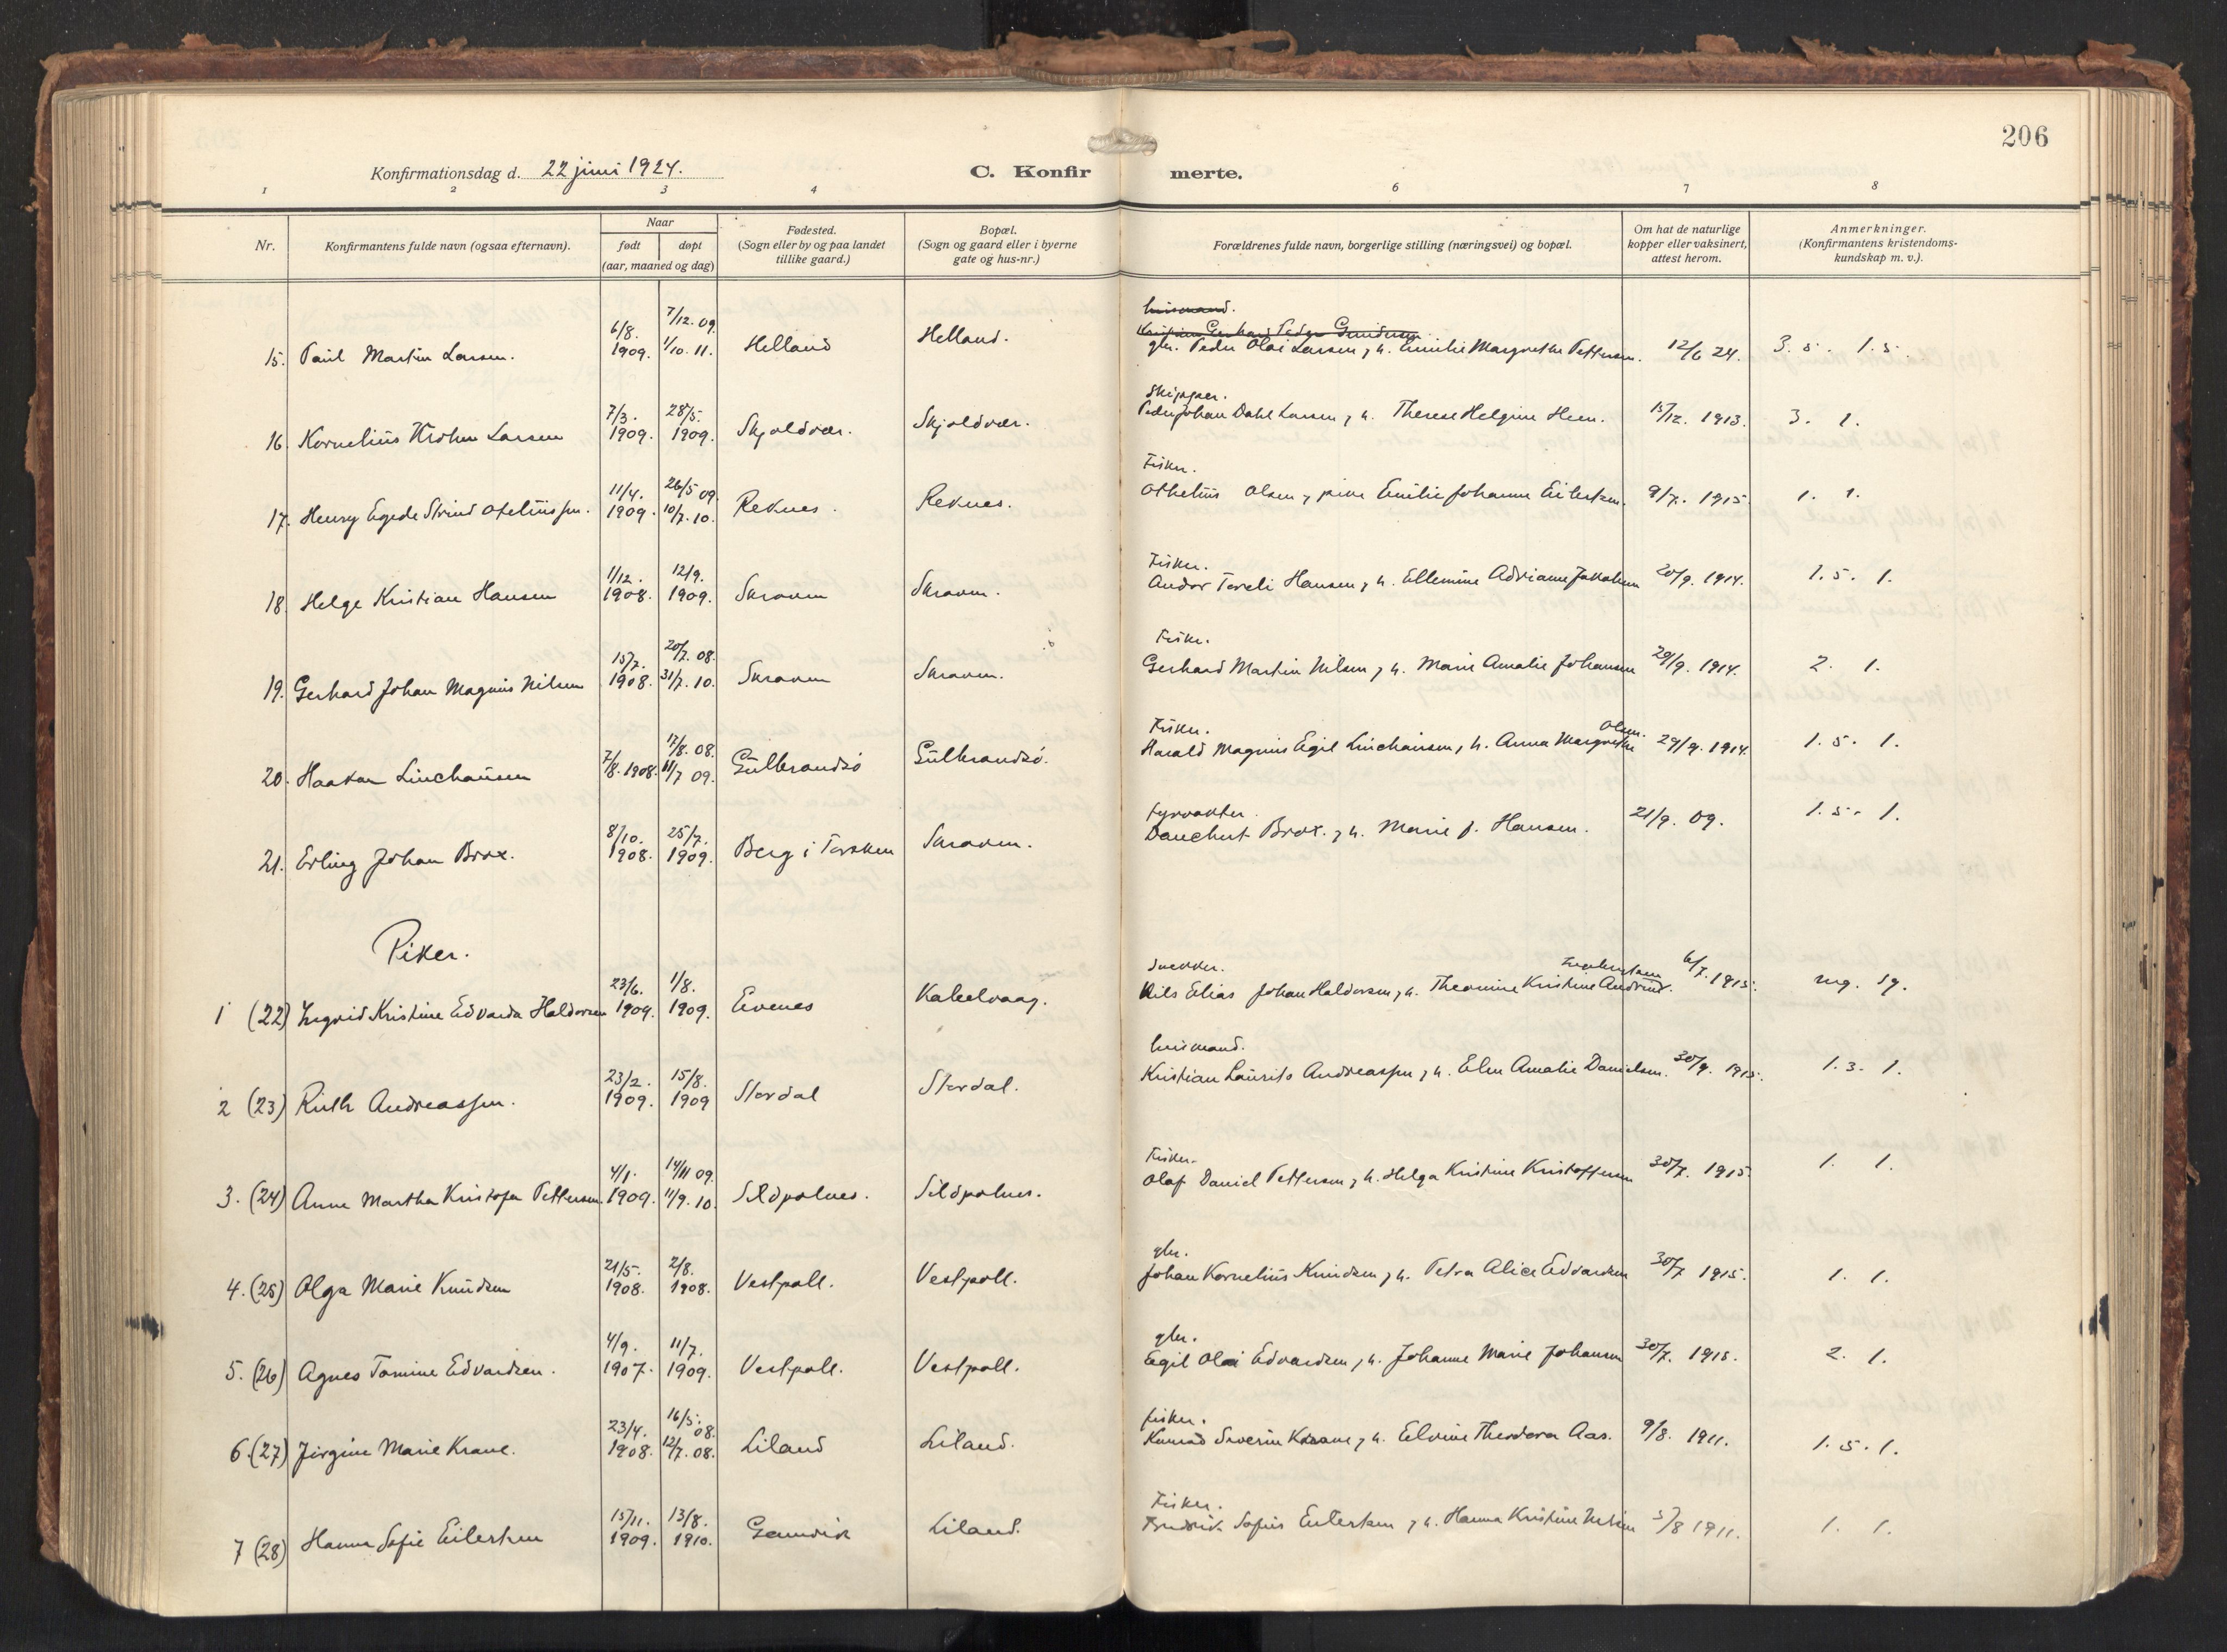 206
Konfirmationsdag d. 22 juni 1924.
C. Konfirmerte.
1 2 3 4 6 7 8
Nr.
Konfirmantens fulde navn (ogsaa efternavn).
Naar
født døpt
(aar, maaned og dag)
Fødested.
(Sogn eller by og paa landet
tillike gaard.)
Bopæl.
(Sogn og gaard eller i byerne
gate og hus-nr.)
Forældrenes fulde navn, borgerlige stilling (næringsvei) og bopæl.
Om hat de naturlige
kopper eller vaksinert,
attest herom.
Anmerkninger.
(Konfirmantens kristendoms-
kundskap m. v.).
husmand.
6/8. 7/12. 09.
15. Paul Martin Larsen. 1909. 1/10. 11. Helland Helland. gbr. Peder Olai Larsen, h. Emilie Margrethe Pettersen. 12/6 24. 3. 5. 1. 5.
7/3. 28/5. Skipper.
16. Kornelius Krohn Larsen 1909. 1909. Skjoldvær. Skjoldvær. Peder Johan Dahl Larsen, h. Therese Helgine Heen. 15/12. 1913. 3. 1.
11/4. 26/5 09. Fisker.
17. Henry Egede Strind Oteliussen. 1909. 10/7. 10. Reknes. Reknes. Othelius Olsen, pike Emilie Johanne Eilertsen. 9/7. 1915. 1. 1.
1/12. 12/9. Fisker.
18. Helge Kristian Hansen 1908. 1909. Skroven Skroven. Andor Toreli Hansen, h. Ellemine Adriane Jakobsen 20/9. 1914. 1. 5. 1.
15/7. 20/7. 08. Fisker.
19. Gerhard Johan Magnus Nilsen 1908. 31/7. 10. Skroven Skroven. Gerhard Martin Nilsen, h. Marie Amalie Johansen 29/9. 1914. 2. 1.
17/8. 08. Fisker. Olsen.
20. Haakon Linchausen 7/8. 1908. 11/7 09. Gulbrandsö Gulbrandsö. Harald Magnus Egil Linchausen, h. Anna Margrethe 29/9. 1914. 1. 5. 1.
8/10. 25/7. Fyrvokter.
21. Erling Johan Brox. 1908. 1909. Berg i Torsken Skroven. Danchert Brox, h. Marie J. Hansen. 21/9. 09. 1. 5. 1.
Piker.
23/6. 1/8. Snekker.
1 (22) Ingrid Kristine Edvarda Haldorsen 1909. 1909. Evenes Kabelvaag. Nils Elias Johan Haldorsen, h. Theomine Kristine 6/7. 1915. mg. 1g.
23/2. 15/8. husmand.
2 (23) Ruth Andreassen. 1909. 1909 Stordal Stordal. Kristian Laurits Andreassen, h. Elen Amalie Danielsen. 30/9. 1915. 1. 3. 1.
4/1. 14/11 09. Fisker.
3. (24) Anne Martha Kristofa Pettersen 1909. 11/9. 10. Sildpolnes. Sildpolnes. Olaf Daniel Pettersen, h. Helga Kristine Kristoffersen 30/7. 1915. 1. 1.
21/5. 2/8. gbr.
4. (25) Olga Marie Knudsen 1908. 1908. Vestpoll. Vestpoll. Johan Kornelius Knudsen, h. Petra Alice Edvardsen 30/7 1915. 1. 1.
4/9. 11/7. gbr.
5. (26) Agnes Tomine Edvardsen. 1907. 1909. Vestpoll. Vestpoll. Egil Olai Edvardsen, h. Johanne Marie Johansen 30/7. 1915. 2. 1.
23/4. 16/5. 08. fisker.
6. (27) Jørgine Marie Krane. 1908. 12/7. 08. Liland Liland. Konrad Severin Krane, h. Elvine Theodora Aas. 9/8. 1911. 1. 5. 1.
15/11. 13/8. Fisker.
7 (28) Hanna Sofie Eilertsen 1909. 1910. Gunvik Liland. Fredrik Sofus Eilertsen, h. Hanna Kristine Nilsen 5/8 1911. 1. 1.